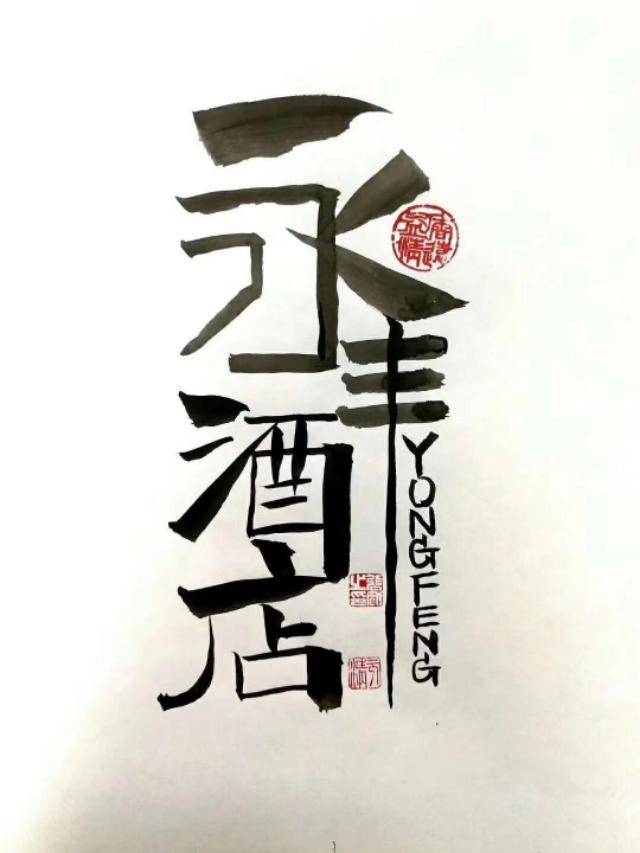 永丰
酒店
YONGFENG